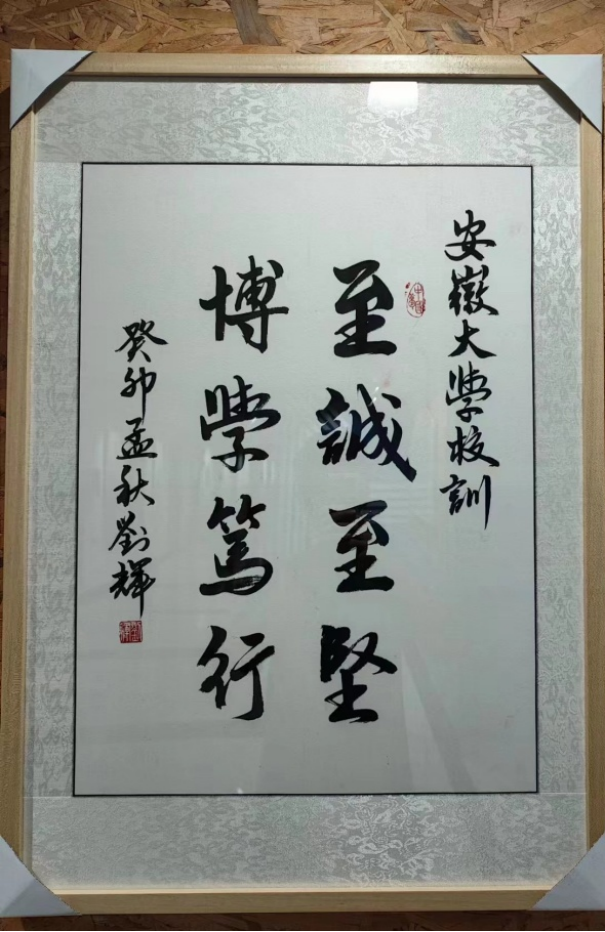 安徽大學校訓
至誠至堅
博學篤行
癸卯孟秋劉輝